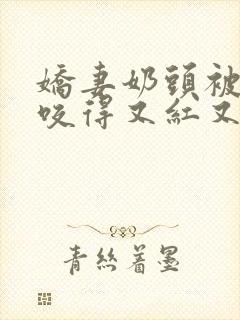 嬌妻奶頭被
咬得又紅又
青絲着墨